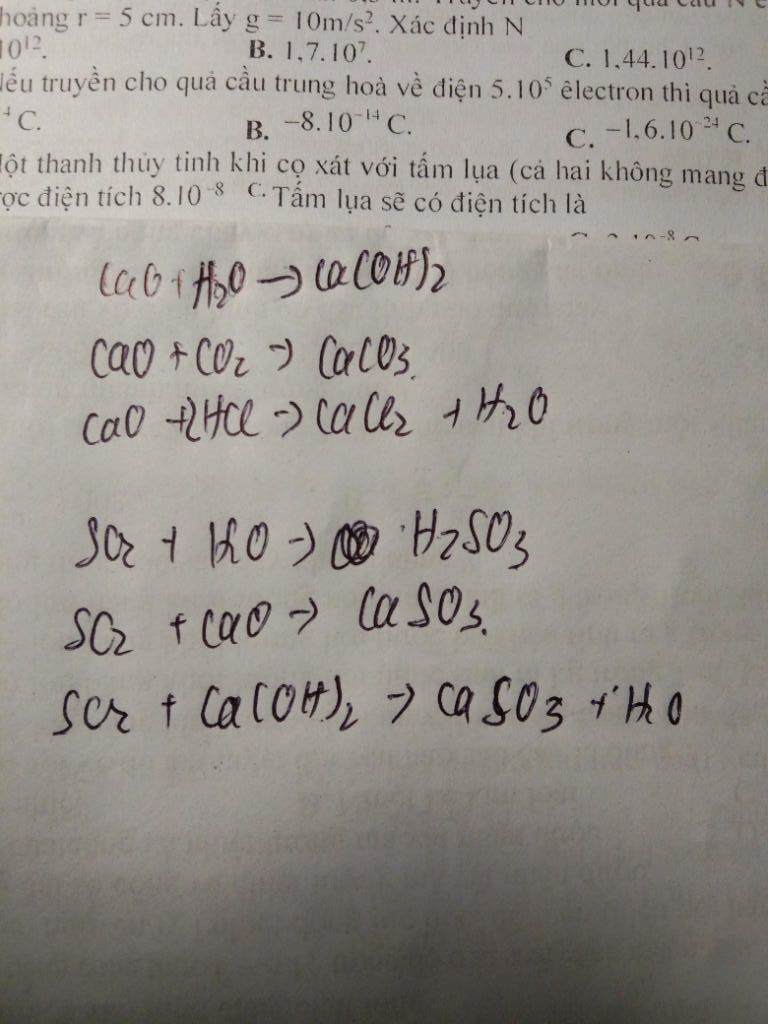 hoảng r = 5 cm. Lấy g = 10m/s². Xác định N
10¹². B. 1,7.10⁷. C. 1,44.10¹².
Nếu truyền cho quả cầu trung hoà về điện 5.10⁵ êlectron thì quả cầ
⁻⁴ C. B. −8.10⁻¹⁴ C. C. −1,6.10⁻²⁴ C.
Một thanh thủy tinh khi cọ xát với tấm lụa (cả hai không mang đ
ợc điện tích 8.10⁻⁸ C. Tấm lụa sẽ có điện tích là
CaO + H₂O → Ca(OH)₂
CaO + CO₂ → CaCO₃.
CaO + 2HCl → CaCl₂ + H₂O
SO₂ + H₂O → H₂SO₃
SO₂ + CaO → CaSO₃.
SO₂ + Ca(OH)₂ → CaSO₃ + H₂O